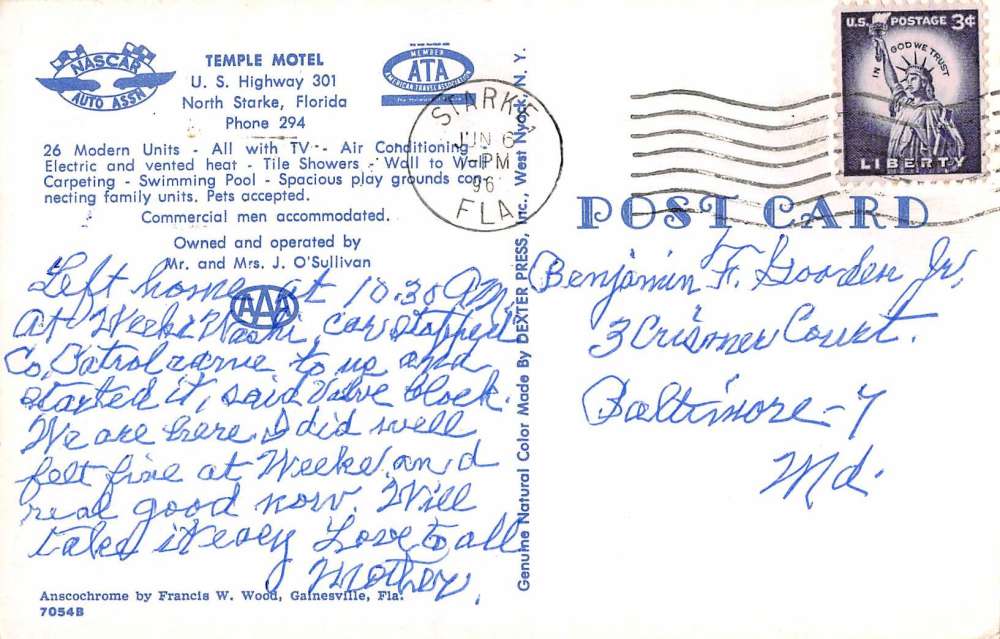 NASCAR
AUTO ASS'N
TEMPLE MOTEL
U. S. Highway 301
North Starke, Florida
Phone 294
MEMBER
ATA
AMERICAN TRAVEL ASSOCIATION
26 Modern Units - All with TV - Air Conditioning
Electric and vented heat - Tile Showers - Wall to Wall
Carpeting - Swimming Pool - Spacious play grounds con-
necting family units. Pets accepted.
Commercial men accommodated.
Owned and operated by
Mr. and Mrs. J. O'Sullivan
AAA
Left home at 10:30 AM
At Weeki Washi, car stopped
Co, Patrol came to us and
started it, said Valve block.
We are here. I did well
felt fine at Weeke and
real good now. Will
take it easy Love to all
Mother.
Anscochrome by Francis W. Wood, Gainesville, Fla.
7054B
Genuine Natural Color Made By DEXTER PRESS, Inc., West Nyack, N. Y.
STARKE
JUN 6
PM
FLA
U.S. POSTAGE 3¢
IN GOD WE TRUST
LIBERTY
POST CARD
Benjamin F. Gooden Jr.
3 Crismer Court.
Baltimore - 7
Md.